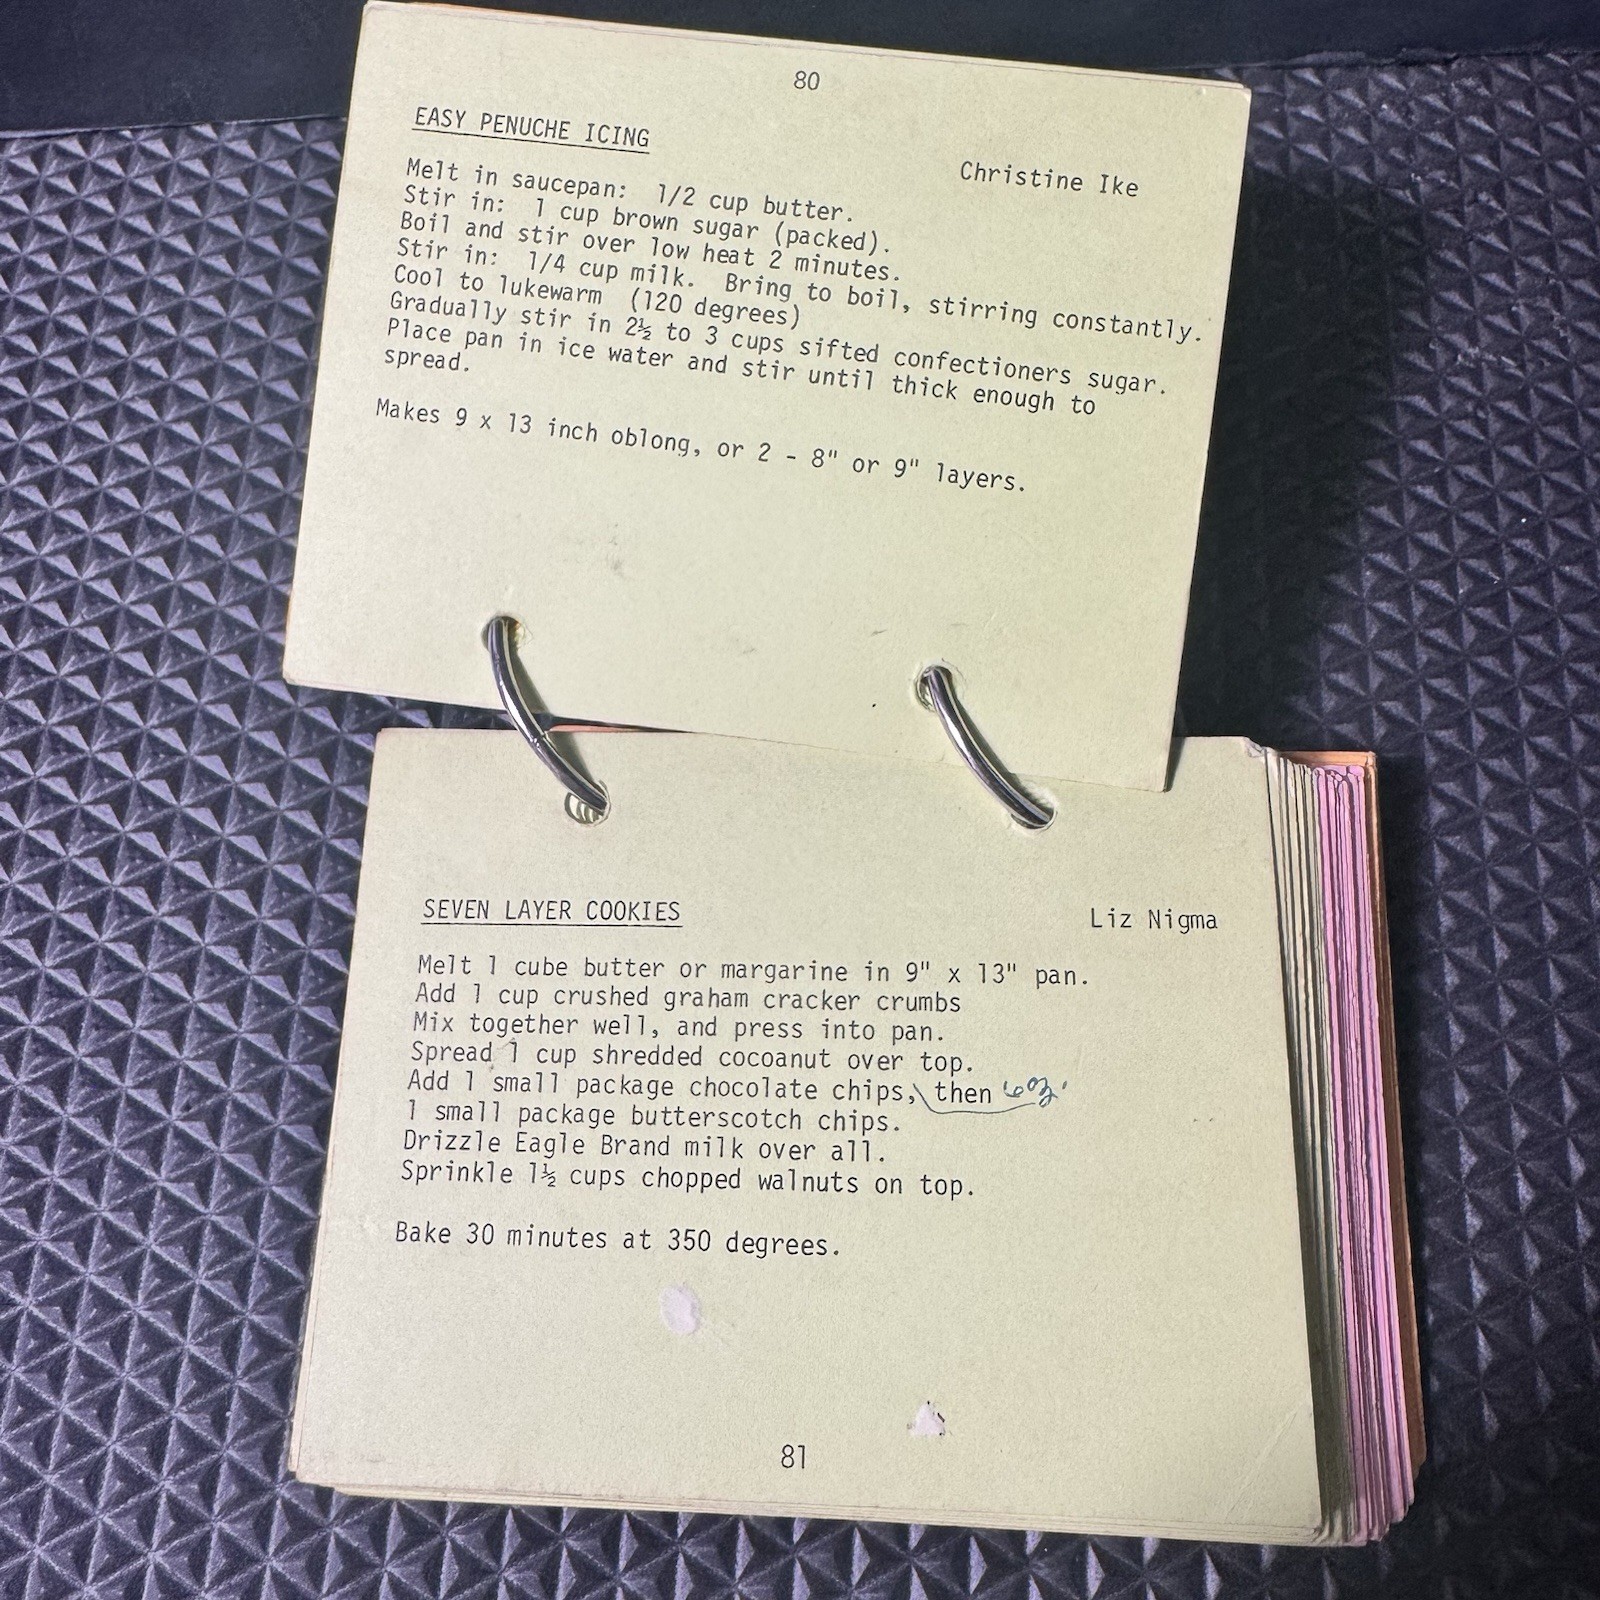 80
EASY PENUCHE ICING
Christine Ike
Melt in saucepan: 1/2 cup butter.
Stir in: 1 cup brown sugar (packed).
Boil and stir over low heat 2 minutes.
Stir in: 1/4 cup milk. Bring to boil, stirring constantly.
Cool to lukewarm (120 degrees)
Gradually stir in 2½ to 3 cups sifted confectioners sugar.
Place pan in ice water and stir until thick enough to
spread.
Makes 9 x 13 inch oblong, or 2 - 8" or 9" layers.
SEVEN LAYER COOKIES
Liz Nigma
Melt 1 cube butter or margarine in 9" x 13" pan.
Add 1 cup crushed graham cracker crumbs
Mix together well, and press into pan.
Spread 1 cup shredded cocoanut over top.
Add 1 small package chocolate chips, then 6oz.
1 small package butterscotch chips.
Drizzle Eagle Brand milk over all.
Sprinkle 1½ cups chopped walnuts on top.
Bake 30 minutes at 350 degrees.
81